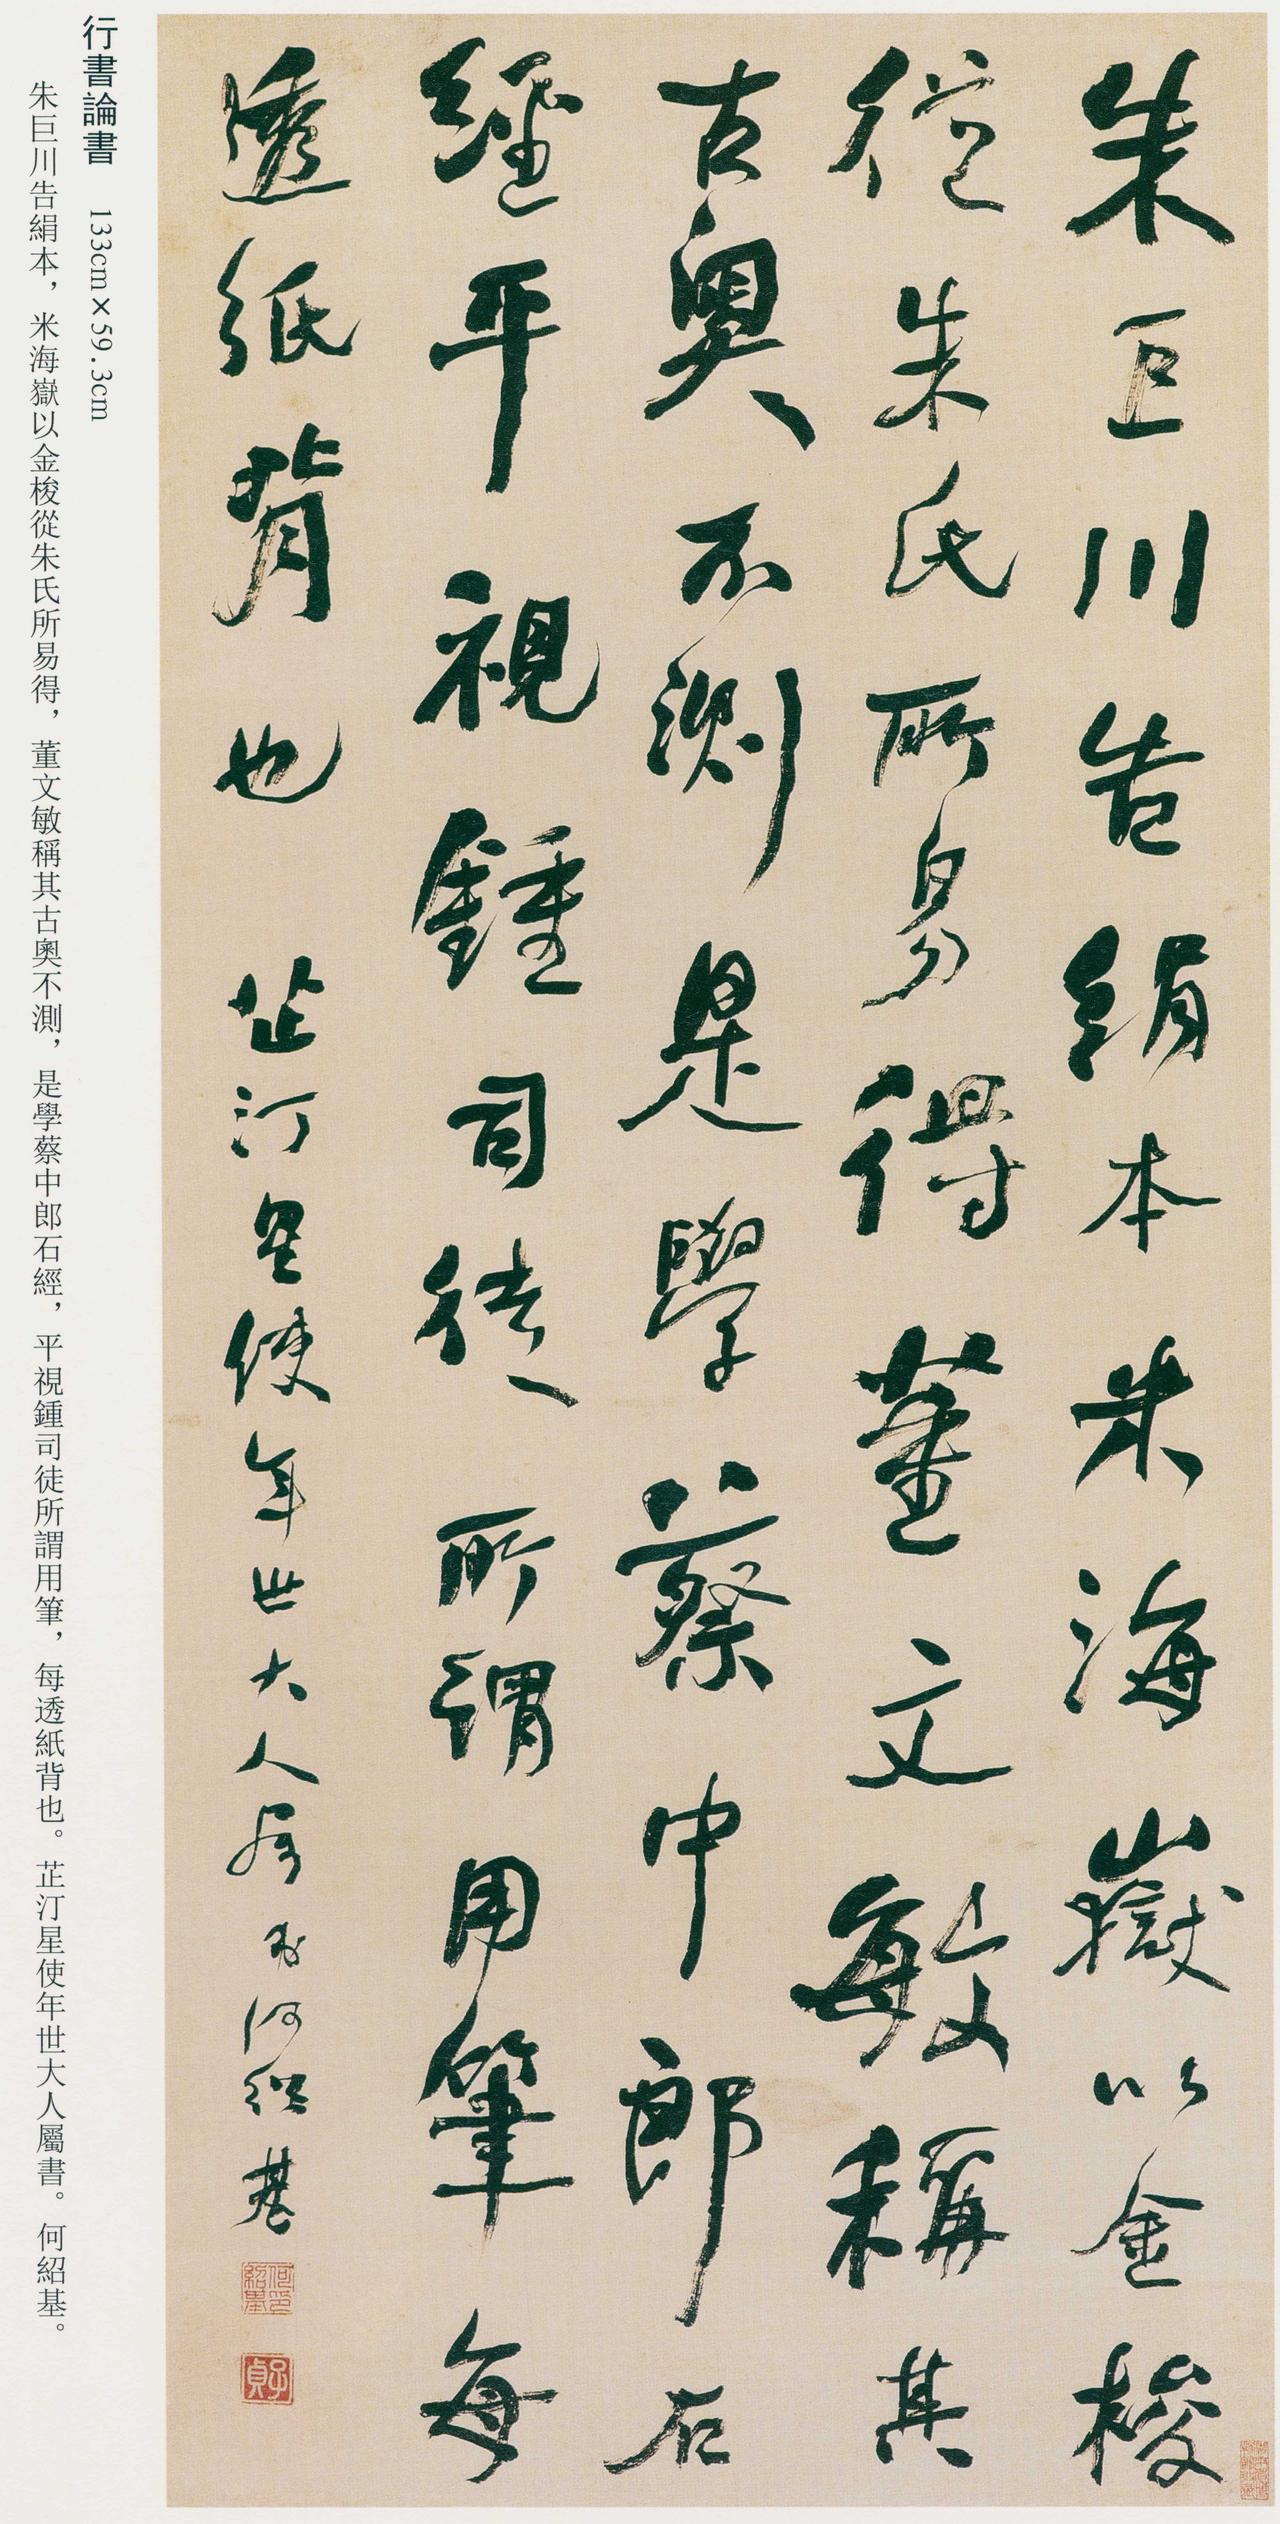 朱巨川告絹本米海嶽以金梭
從朱氏所易得董文敏稱其
古奧不測是學蔡中郎石
經平視鍾司徒所謂用筆每
透紙背也 芷汀星使年世大人屬書何紹基
何紹基印
子貞
行書論書 133cm×59.3cm
朱巨川告絹本，米海嶽以金梭從朱氏所易得，董文敏稱其古奧不測，是學蔡中郎石經，平視鍾司徒所謂用筆，每透紙背也。芷汀星使年世大人屬書。何紹基。